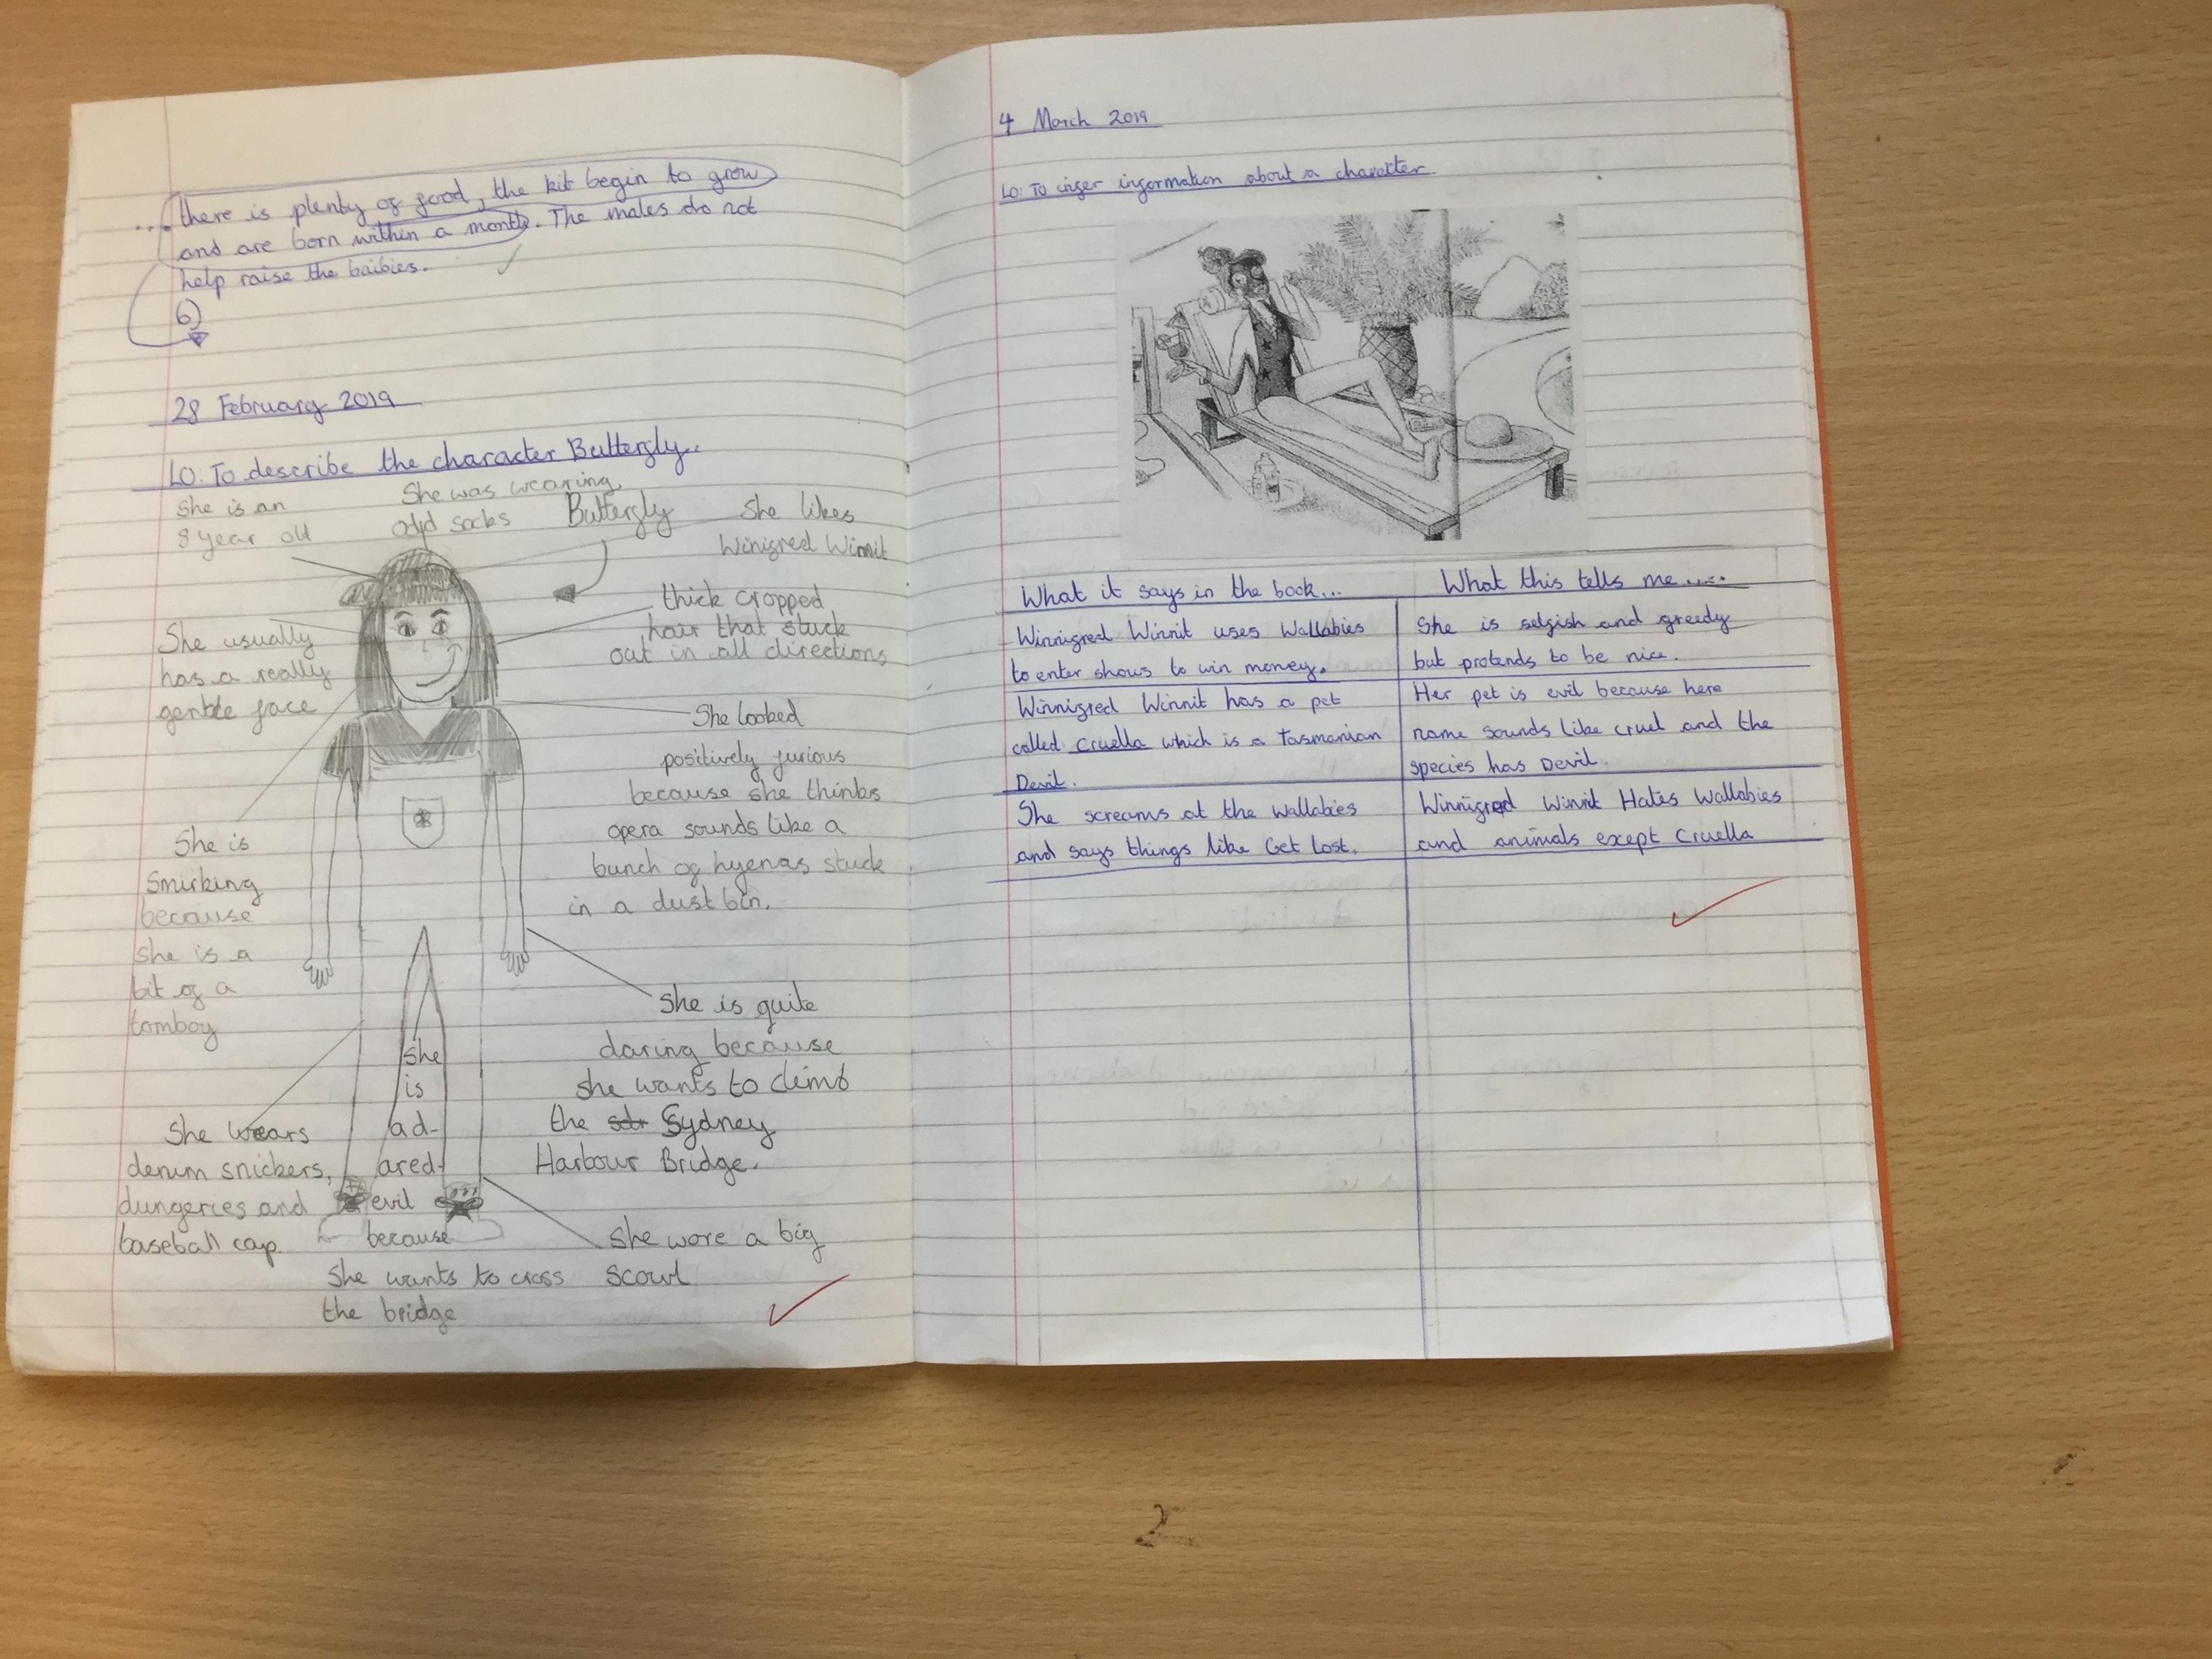 ...there is plenty of food, the kit begin to grow
and are born within a month. The males do not
help raise the baibies.
6)
28 February 2019
LO: To describe the character Butterfly..
She is an
8 year old
She was wearing
odd socks
Butterfly
She likes
Winifred Winnit
thick cropped
hair that stuck
out in all directions
She usually
has a really
gentle face
She looked
positively furious
because she thinks
opera sounds like a
bunch of hyenas stuck
in a dust bin.
She is
Smirking
because
she is a
bit of a
tomboy
She is quite
daring because
she wants to climb
the Sydney
Harbour Bridge.
She wears
denim snickers,
dungeries and
baseball cap.
she
is
ad-
ared-
evil
because
She wants to cross
the bridge
She wore a big
scowl
4 March 2019
LO: To infer information about a character.
What it says in the book...
What this tells me.....
Winnifred Winnit uses Wallabies
to enter shows to win money.
She is selfish and greedy
but pretends to be nice.
Winnifred Winnit has a pet
called Cruella which is a Tasmanian
Devil.
Her pet is evil because here
name sounds like cruel and the
species has Devil.
She screams at the wallabies
and says things like Get Lost.
Winnifred Winnit Hates Wallabies
and animals except Cruella